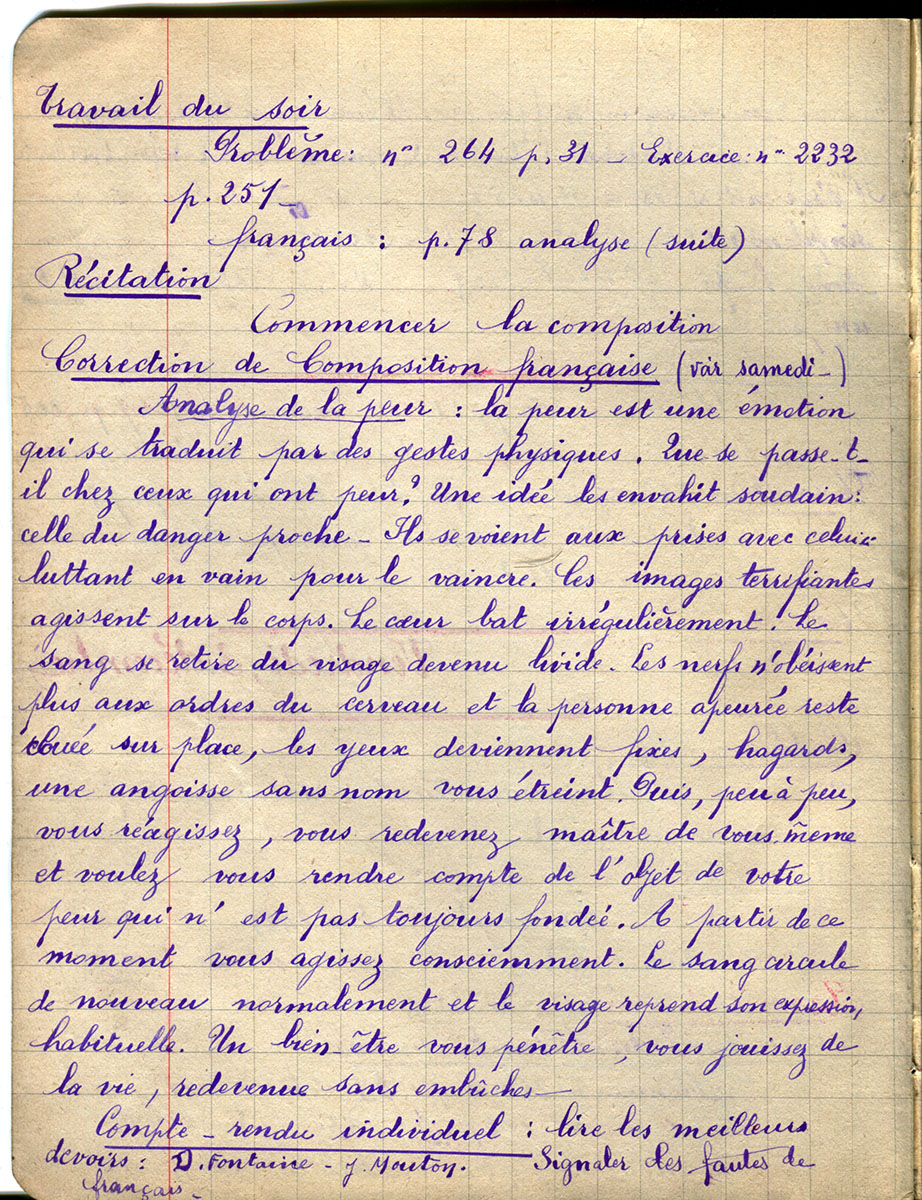 Travail du soir
Problème: n° 264 p. 31 - Exercice: n° 2232
p. 251 -
français : p. 78 analyse (suite)
Récitation
Commencer la composition
Correction de Composition française (voir samedi -)
Analyse de la peur : la peur est une émotion
qui se traduit par des gestes physiques. Que se passe-t-
il chez ceux qui ont peur? Une idée les envahit soudain :
celle du danger proche - Ils se voient aux prises avec celui-ci
luttant en vain pour le vaincre. Ces images terrifiantes
agissent sur le corps. Le cœur bat irrégulièrement. Le
sang se retire du visage devenu livide. Les nerfs n'obéissent
plus aux ordres du cerveau et la personne apeurée reste
clouée sur place, les yeux deviennent fixes, hagards,
une angoisse sans nom vous étreint. Puis, peu à peu,
vous réagissez, vous redevenez maître de vous-même
et voulez vous rendre compte de l'objet de votre
peur qui n'est pas toujours fondée. A partir de ce
moment vous agissez consciemment. Le sang circule
de nouveau normalement et le visage reprend son expression
habituelle. Un bien-être vous pénètre, vous jouissez de
la vie, redevenue sans embûches -
Compte-rendu individuel : lire les meilleurs
devoirs : D. Fontaine - J. Mouton. Signaler des fautes de
français -